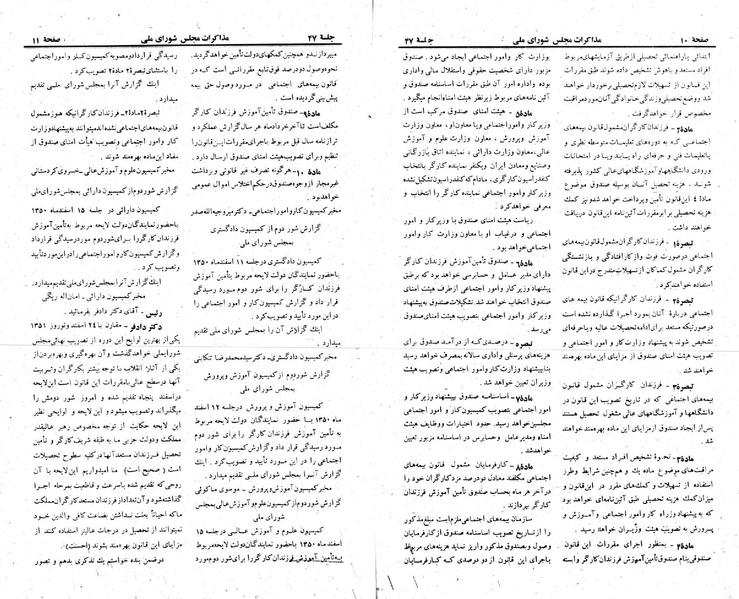 صفحهٔ ۱۰
مذاکرات مجلس شورای ملی
جلسهٔ ۴۷
ابتدائی یاراهنمائی تحصیلی ازطریق آزمایشهای مربوط
افراد مستعد و باهوش تشخیص داده شوند طبق مقررات
این قانون از تسهیلات لازم تحصیلی برخوردار خواهند
شد ووضع تحصیلی وزندگی خانوادگی آنان مورد مراقبت
مخصوص قرار خواهد گرفت.
ماده۲ - فرزندان کارگران مشمول قانون بیمه‌های
اجتماعی که به دوره‌های تحصیلات متوسطه نظری و
یا تعلیمات فنی و حرفه‌ای راه یابند و یا در امتحانات
ورودی دانشگاهها و آموزشگاههای عالی کشور پذیرفته
شوند هزینه تحصیل آنان بوسیله صندوق موضوع
مادهٔ ۴ این قانون تأمین و پرداخت خواهد شد و نیز کمک
هزینه تحصیلی برابر مقررات آئین نامه این قانون دریافت
خواهند داشت
تبصره۱ - فرزندان کارگران مشمول قانون بیمه‌های
اجتماعی درصورت فوت و از کار افتادگی و بازنشستگی
کارگران مشمول کماکان از تسهیلات مندرج در این قانون
استفاده خواهند کرد.
تبصره۲ - فرزندان کارگرانی که قانون بیمه های
اجتماعی دربارهٔ آنان بمورد اجرا گذارده نشده است
درصورتیکه مستعد برای ادامه تحصیلات عالیه و یا حرفه‌ای
تشخیص شوند به پیشنهاد وزارت کار و امور اجتماعی و
تصویب هیئت امنای صندوق از مزایای این ماده بهره‌مند
خواهند شد.
تبصره۳ - فرزندان کارگران مشمول قانون
بیمه‌های اجتماعی که در تاریخ تصویب این قانون در
دانشگاهها و آموزشگاههای عالی مشغول تحصیل هستند
پس از ایجاد صندوق از مزایای این ماده بهره‌مند خواهند
شد.
ماده۳ - نحوهٔ تشخیص افراد مستعد و کیفیت
مراقبت‌های موضوع ماده یک و همچنین شرایط وطرز
استفاده از تسهیلات و کمک‌های مقرر در این قانون و
میزان کمک هزینه تحصیلی طبق آئین‌نامه‌ای خواهد بود
که به پیشنهاد وزراء کار و امور اجتماعی و آموزش و
پرورش به تصویب هیئت وزیران خواهد رسید.
ماده۴ - بمنظور اجرای مقررات این قانون
صندوقی بنام صندوق تأمین آموزش فرزندان کارگر وابسته
بوزارت کار و امور اجتماعی ایجاد می‌شود. صندوق
مزبور دارای شخصیت حقوقی و استقلال مالی و اداری
بوده و اداره امور آن طبق مقررات اساسنامه صندوق و
آئین نامه‌های مربوط زیرنظر هیئت امناء انجام میگیرد.
ماده۵ - هیئت امنای صندوق مرکب است از
وزیر کار و امور اجتماعی و یا معاون او، معاون وزارت
آموزش و پرورش، معاون وزارت علوم و آموزش
عالی، معاون وزارت دارائی، نماینده اتاق بازرگانی
وصنایع و معادن ایران و یکنفر نماینده کارگر بانتخاب
کنفدراسیون کارگری، مادام که کنفدراسیون تشکیل نشده
وزیر کار و امور اجتماعی نماینده کارگر را انتخاب و
معرفی خواهد کرد.
ریاست هیئت امنای صندوق با وزیر کار و امور
اجتماعی و درغیاب او با معاون وزارت کار و امور
اجتماعی خواهد بود.
ماده۶ - صندوق تأمین آموزش فرزندان کارگر
دارای مدیر عامل و حسابرسی خواهد بود که برطبق
وزیر کار و امور اجتماعی ازطرف هیئت امنای
صندوق انتخاب خواهد شد. تشکیلات صندوق به پیشنهاد
وزیر کار و امور اجتماعی بتصویب هیئت امنای صندوق
میرسد.
تبصره - درصدی که از درآمد صندوق برای
هزینه‌های پرسنلی و اداری سالانه بمصرف خواهد رسید
بنابپیشنهاد وزیر کار و امور اجتماعی و تصویب هیئت
وزیران تعیین خواهد شد.
ماده۷ - اساسنامه صندوق بپیشنهاد وزیر کار و
امور اجتماعی بتصویب کمیسیون کار و امور اجتماعی
مجلسین خواهد رسید. حدود اختیارات و وظایف هیئت
امناء و مدیر عامل و حسابرس در اساسنامه مزبور تعیین
خواهد شد.
ماده۸ - کارفرمایان مشمول قانون بیمه‌های
اجتماعی مکلفند معادل دودرصد مزد کارگران خود را
در آخر هر ماه بحساب صندوق تأمین آموزش فرزندان
کارگر بپردازند.
سازمان بیمه‌های اجتماعی ملزم است مبلغ مذکور
را از تاریخ تصویب اساسنامه صندوق از کارفرمایان
وصول و بصندوق مذکور واریز نماید هزینه‌های مربوط
باجرای این قانون از دو درصدی که کارفرمایان
صفحهٔ ۱۱
مذاکرات مجلس شورای ملی
جلسهٔ ۴۷
میپردازند و همچنین کمکهای دولت تأمین خواهد گردید.
نحوه وصول دودرصد فوق تابع مقرراتی است که در
قانون بیمه‌های اجتماعی در مورد وصول حق بیمه
پیش‌بینی گردیده است.
ماده۹ - صندوق تأمین آموزش فرزندان کارگر
مکلف است تا آخر خرداد ماه هر سال گزارش عملکرد و
ترازنامه سال قبل مربوط باجرای مقررات این قانون را
تنظیم و برای تصویب هیئت امنای صندوق ارسال دارد.
ماده ۱۰ - هرگونه تصرف غیر قانونی و برداشت
غیرمجاز از وجوه صندوق در حکم اختلاس اموال عمومی
خواهد بود.
مخبر کمیسیون کار و امور اجتماعی - دکتر میروجیه‌الله صدر
گزارش شور دوم از کمیسیون دادگستری
به مجلس شورای ملی
کمیسیون دادگستری در جلسه ۱۱ اسفند ماه ۱۳۵۰
باحضور نمایندگان دولت لایحه مربوط به تأمین آموزش
فرزندان کارگر را برای شور دوم مورد رسیدگی
قرار داد و گزارش کمیسیون کار و امور اجتماعی را
در این مورد تأیید و تصویب کرد.
اینک گزارش آن را به مجلس شورای ملی تقدیم
میدارد.
مخبر کمیسیون دادگستری - دکتر سید محمدرضا تنکابنی
گزارش شور دوم از کمیسیون آموزش و پرورش
به مجلس شورای ملی
کمیسیون آموزش و پرورش درجلسه ۱۲ اسفند
ماه ۱۳۵۰ با حضور نمایندگان دولت لایحه مربوط
به تأمین آموزش فرزندان کارگر را برای شور دوم
مورد رسیدگی قرار داد و گزارش کمیسیون کار و امور
اجتماعی را در این مورد تأیید و تصویب کرد. اینک
گزارش آنرا به مجلس شورای ملی تقدیم میدارد.
مخبر کمیسیون آموزش و پرورش - موسوی ماکوئی
گزارش شور دوم از کمیسیون علوم و آموزش عالی به مجلس
شورای ملی
کمیسیون علوم و آموزش عالی درجلسه ۱۵
اسفند ماه ۱۳۵۰ با حضور نمایندگان دولت لایحه مربوط
به تأمین آموزش فرزندان کارگر را برای شور دوم مورد
رسیدگی قرار داد و مصوبه کمیسیون کار و امور اجتماعی
را باستثنای تبصره۲ ماده۲ تصویب کرد.
اینک گزارش آنرا به مجلس شورای ملی تقدیم
میدارد.
تبصره۲ ماده۲ - فرزندان کارگرانیکه هنوز مشمول
قانون بیمه‌های اجتماعی نشده‌اند میتوانند به پیشنهاد وزارت
کار و امور اجتماعی و تصویب هیأت امنای صندوق از
مفاد این ماده بهره‌مند شوند.
مخبر کمیسیون علوم و آموزش عالی - خسروی کردستانی
گزارش شور دوم از کمیسیون دارائی به مجلس شورای ملی
کمیسیون دارائی در جلسه ۱۵ اسفند ماه ۱۳۵۰
باحضور نمایندگان دولت لایحه مربوط به تأمین آموزش
فرزندان کارگر را برای شور دوم مورد رسیدگی قرار داد
و گزارش کمیسیون کار و امور اجتماعی را در این مورد تأیید
و تصویب کرد.
اینک گزارش آنرا به مجلس شورای ملی تقدیم میدارد.
مخبر کمیسیون دارائی - امان‌اله ریگی
رئیس - آقای دکتر دادفر بفرمائید.
دکتر دادفر - مقارن با ۲۴ اسفند و نوروز ۱۳۵۱
یکی از بهترین لوایح این دوره از تصویب نهائی مجلس
شورایملی خواهد گذشت و آن بهره‌گیری و بهره بردن از
یکی از آثار انقلاب با توجه بیشتر بکارگران و تربیت
آنها درسطح عالی با مقررات این قانون است این لایحه
دراسفند پنجاه تقدیم شده و امروز شور دومش را
میگذراند و تصویب میشود و این لایحه و لوایحی نظیر
این لایحه حکایت از توجه مخصوص رهبر عالیقدر
مملکت و دولت حزبی ما به طبقه شریف کارگر و تأمین
تحصیل فرزندان مستعد آنها در کلیه سطوح تحصیلات
است (صحیح است) ما امیدواریم این لایحه با آن
روحی که تقدیم شده باسرعت و قاطعیت بمرحله اجرا
گذاشته شود و آن تعداد از فرزندان مستعد کارگران مملکت
ما که احیاناً بعلت نداشتن بضاعت کافی والدین خود
نمیتوانند از تحصیل در درجات عالیتر استفاده کنند از
مزایای این قانون بهره‌مند بشوند (احسنت).
در ضمن بنده خواستم یک تذکری بدهم و تصور